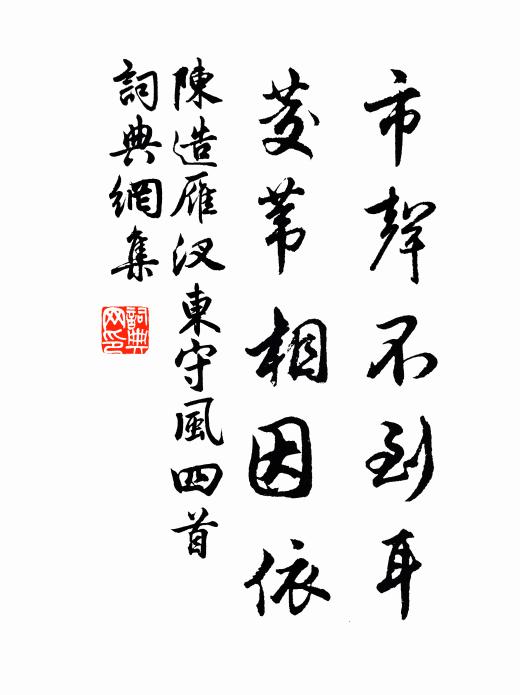 市聲不到耳
茭葦相因依
陳造雁汊東守風四首
詞典網集
詞典网印